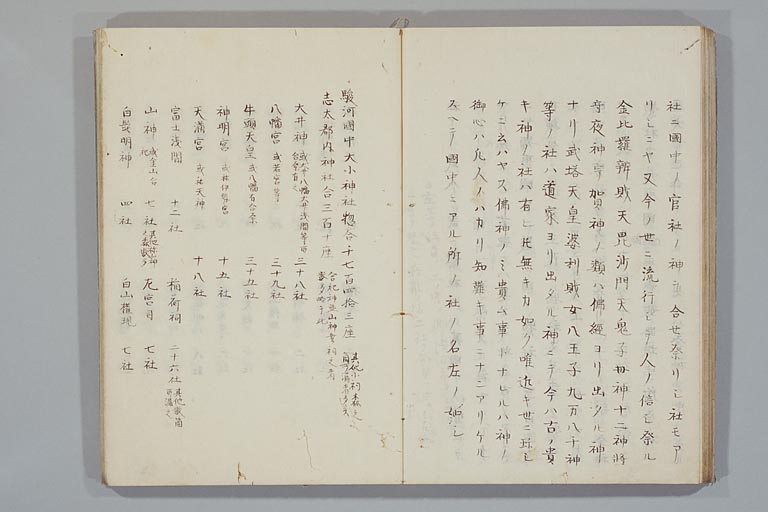 社ニ國中ノ官社ノ神ヲ合セ祭リシ社モア
リシニヤ又今ノ世ニ流行シテ人ノ信シ祭ル
金比羅辨財天毘沙門天鬼子母神十二神將
守夜神宇賀神ノ類ハ佛經ヨリ出タル神
ナリ武塔天皇婆利賊女八王子九万八千神
等ノ社ハ道家ヨリ出タル神ニテ今ハ古ノ貴
キ神ノ社ハ有レ𪜈無キカ如ク唯近キ世ニ珎シ
ケニ
ハヤス佛神ノミ貴ム事トナレルハ神ノ
御心ハ凡人ノハカリ知難キ事ニナンアリケル
スヘテ國中ニアル所ノ社ノ名左ノ如シ
駿河國中大小神社惣合千七百四拾三座 其他小祠
志太郡内神社合三百十二座
大井神 三十八社
八幡宮 或若宮 三十九社
牛頭天皇 或八幡百合 三十五社
神明宮 或称伊勢宮 十五社
天滿宮 或社天神 十八社
冨士浅間 十二社 稲荷祠 二十六社 其他
山神 七社 龙宮司 七社
白髭明神 四社 白山權現 七社